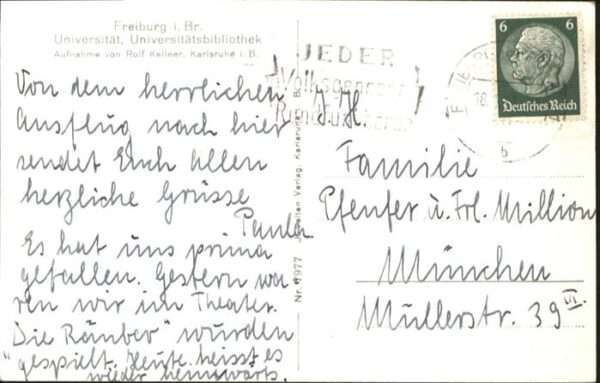 Freiburg i. Br.
Universität, Universitätsbibliothek
Aufnahme von Rolf Kellner, Karlsruhe i. B.
Von dem herrlichen
Ausflug nach hier
sendet Euch allen
herzliche Grüsse
Paula
Es hat uns prima
gefallen. Gestern wa-
ren wir im Theater.
"Die Räuber" wurden
gespielt. Heute heisst es
wieder heimwärts.
Nr. 1977 Verlag, Karlsruhe
JEDER
6 6
Deutsches Reich
I. H.
Familie
Pfenfer u. Frl. Million
München
Müllerstr. 39 VI.